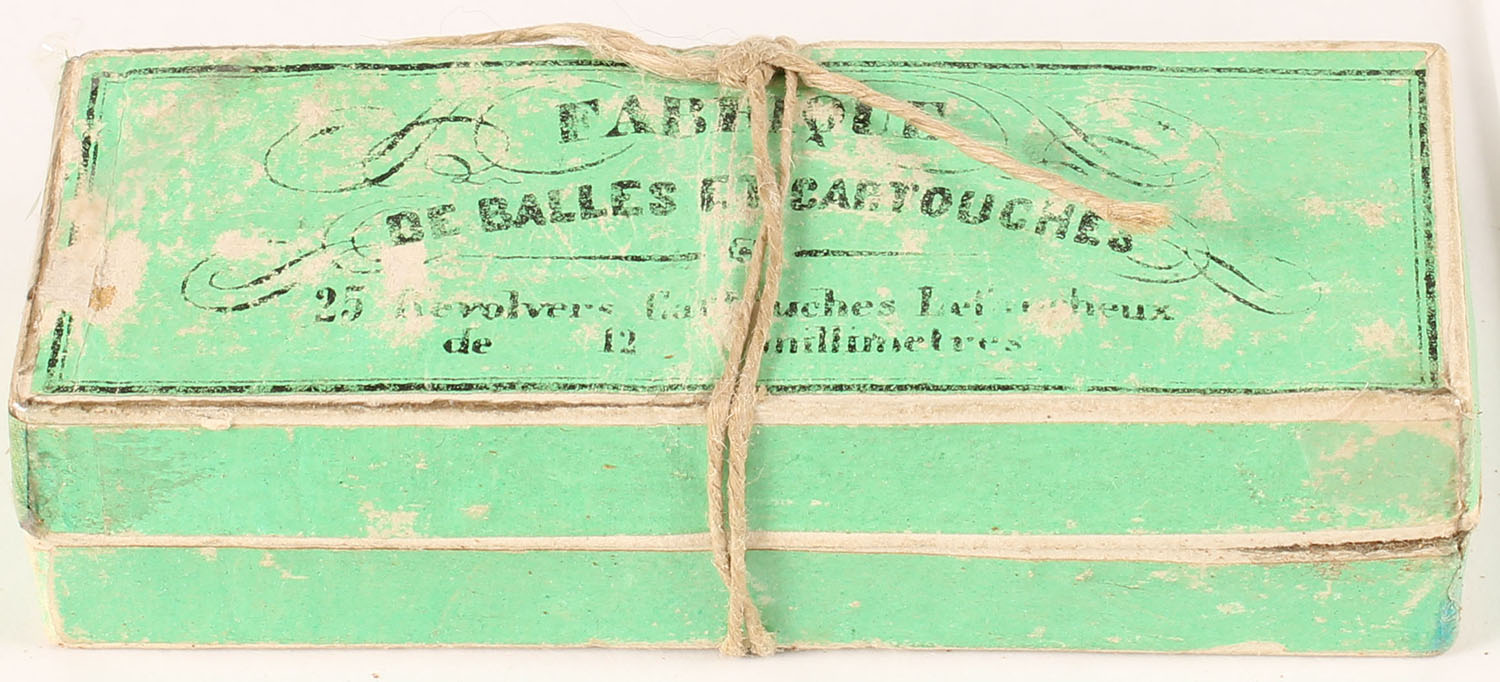 FABRIQUE
DE BALLES ET CARTOUCHES
25 Revolvers Cartouches Lefaucheux
de 12 millimetres